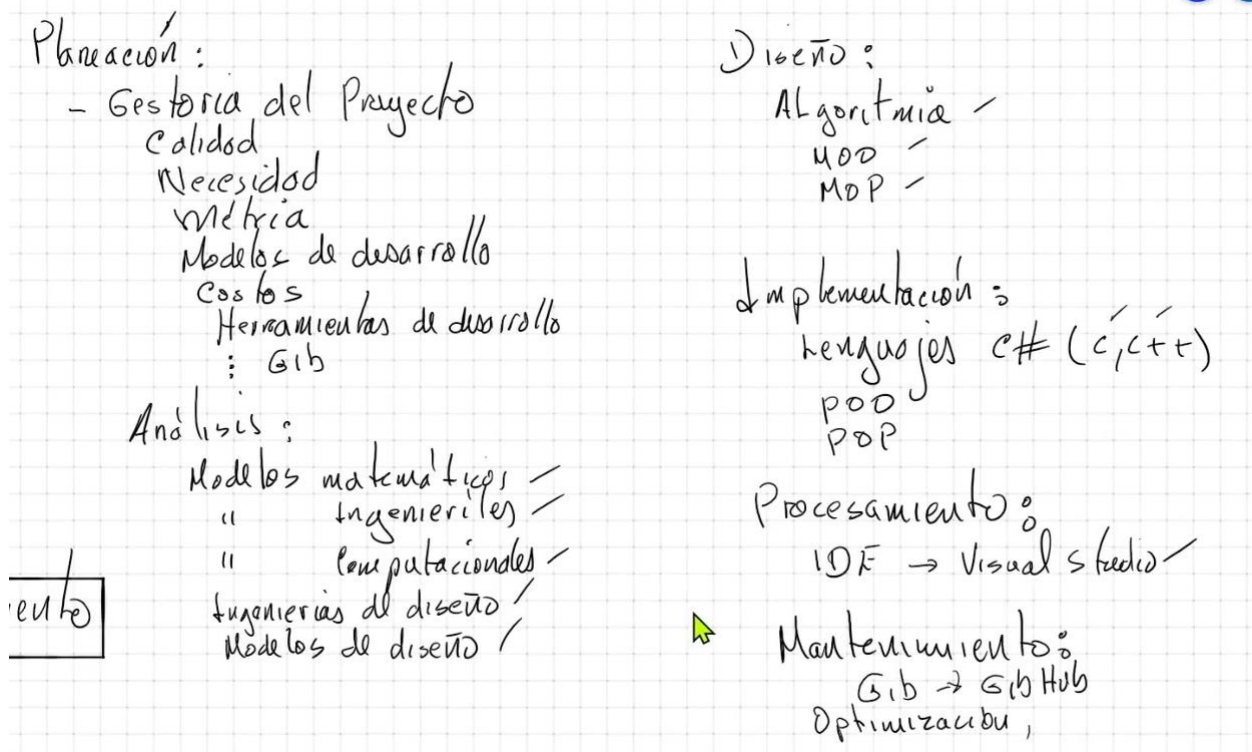 Planeación:
- Gestoria del Proyecto
Calidad
Necesidad
Métria
Modelos de desarrollo
Costos
Herramientas de desarrollo
⋮ Gib
Análisis:
Modelos matemáticos
" Ingenieriles
" Computacionales
Ingenierías de diseño
Modelos de diseño
ento
Diseño:
ALgoritmia
MOO
MOP
Implementación:
Lenguajes C# (C, C++)
POO
POP
Procesamiento:
IDE → Visual studio
Mantenimiento:
Gib → GibHub
Optimización,